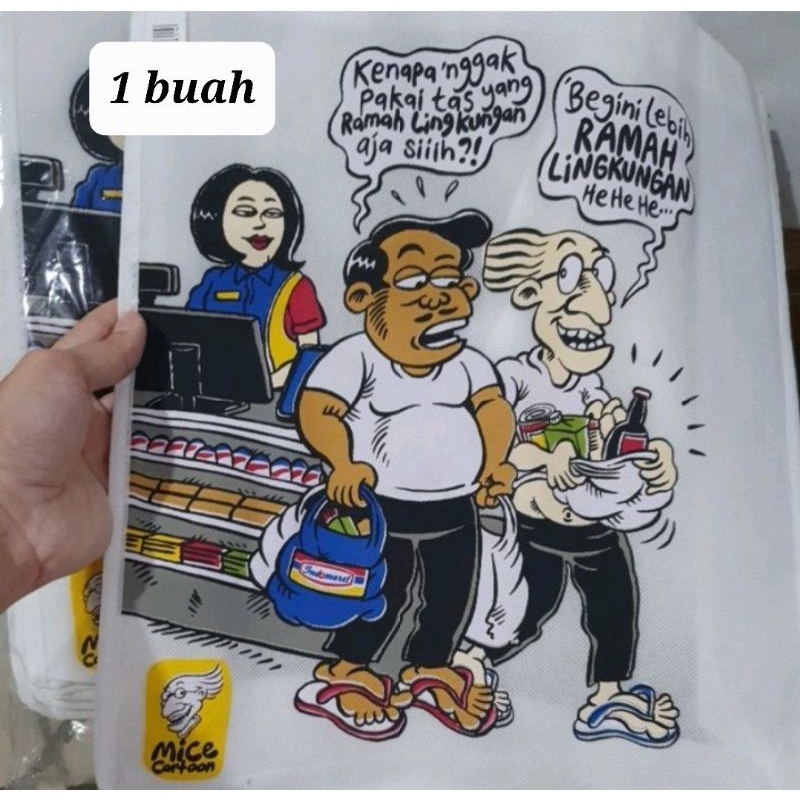 1 buah
Kenapa 'nggak
Pakai tas yang
Ramah Lingkungan
aja siiih?!
'Begini Lebih
RAMAH
LiNGKUNGAN
He He He...
Indomaret
MiCE
Cartoon